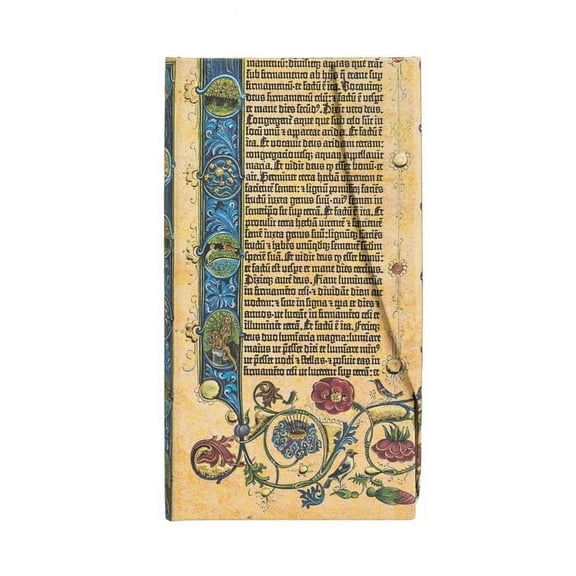 mamentum: diuisitq; aquas que erāt
sub firmamento ab hijs q̄ erant sup
firmamentū: et factū ē ita. Vocauitq;
deus firmamentū celū: ⁊ factū ē vespe
et mane dies secūd⁹. Dixit vero deus.
Congregent̄ aque que sub celo sūt in
locū unū ⁊ appareat arida. Et factū ē
ita. Et vocauit deus aridam terram:
congregacionesq; aquaꝝ appellauit
maria. Et vidit deus ꝙ esset bonū·
et ait. Germinet terra herbā virentem et
facientē semen: ⁊ lignū pomiferū faciēs
fructū iuxta genus suū· cui⁹ semen in
semetipō sit sup terrā. Et factū ē ita. Et
protulit terra herbā virentem ⁊ facientē
semen iuxta genus suū: lignūq; faciēs
fructū ⁊ habēs unūqdq; sementē scdm
speciē suā. Et vidit deus ꝙ esset bonū:
et factū est vespe et mane dies tercius.
Dixitq; autē deus. Fiant luminaria
in firmamēto celi· ⁊ diuidāt diem ac
noctem: ⁊ sint in signa ⁊ tpa et dies ⁊
annos· ut luceāt in firmamēto celi et
illuminēt terrā. Et factū ē ita. Fecitq;
deus duo luminaria magna: luminare
maius ut pesset diei et luminare min⁹
ut pesset nocti ⁊ stellas· ⁊ posuit eas in
firmamēto celi ut lucerent sup terrā: et